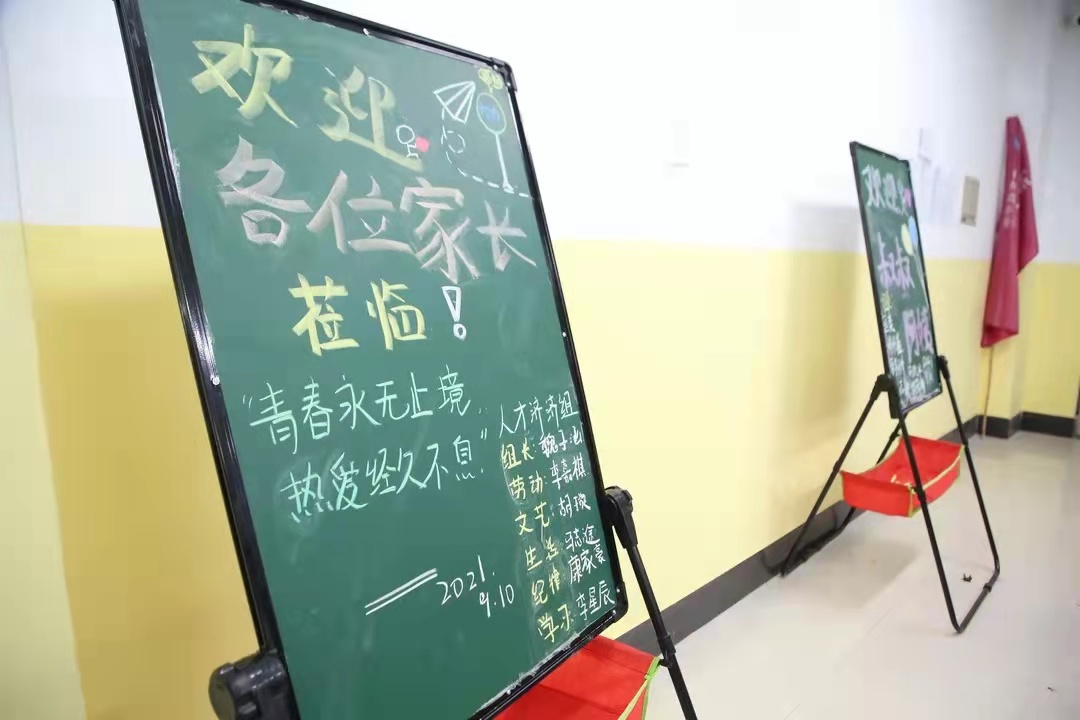 欢迎
各位家长
莅临!
"青春永无止境,
热爱经久不息."
人才济济组
组长:魏子涵
劳动:李嘉棋
文艺:胡璇
生活:
纪律:康家豪
学习:李星辰
2021.
9.10
欢迎
叔叔
阿姨